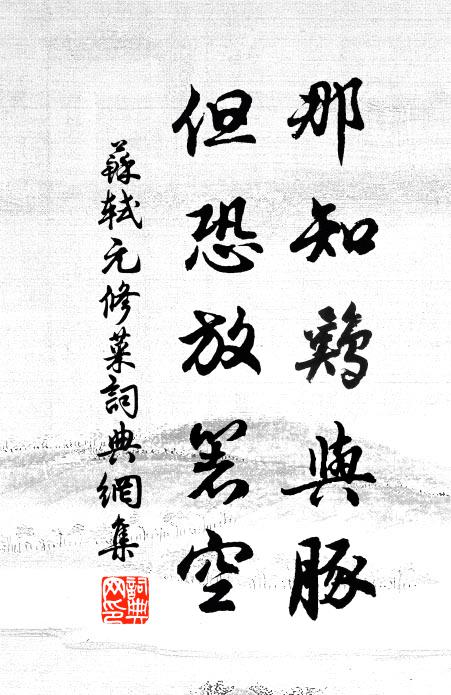 那知鷄與豚
但恐放箸空
蘇軾元修菜詞典網集
詞典网印